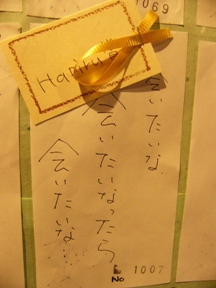 1069
会いたいな
会いたいなったら
会いたいな…
No 1007